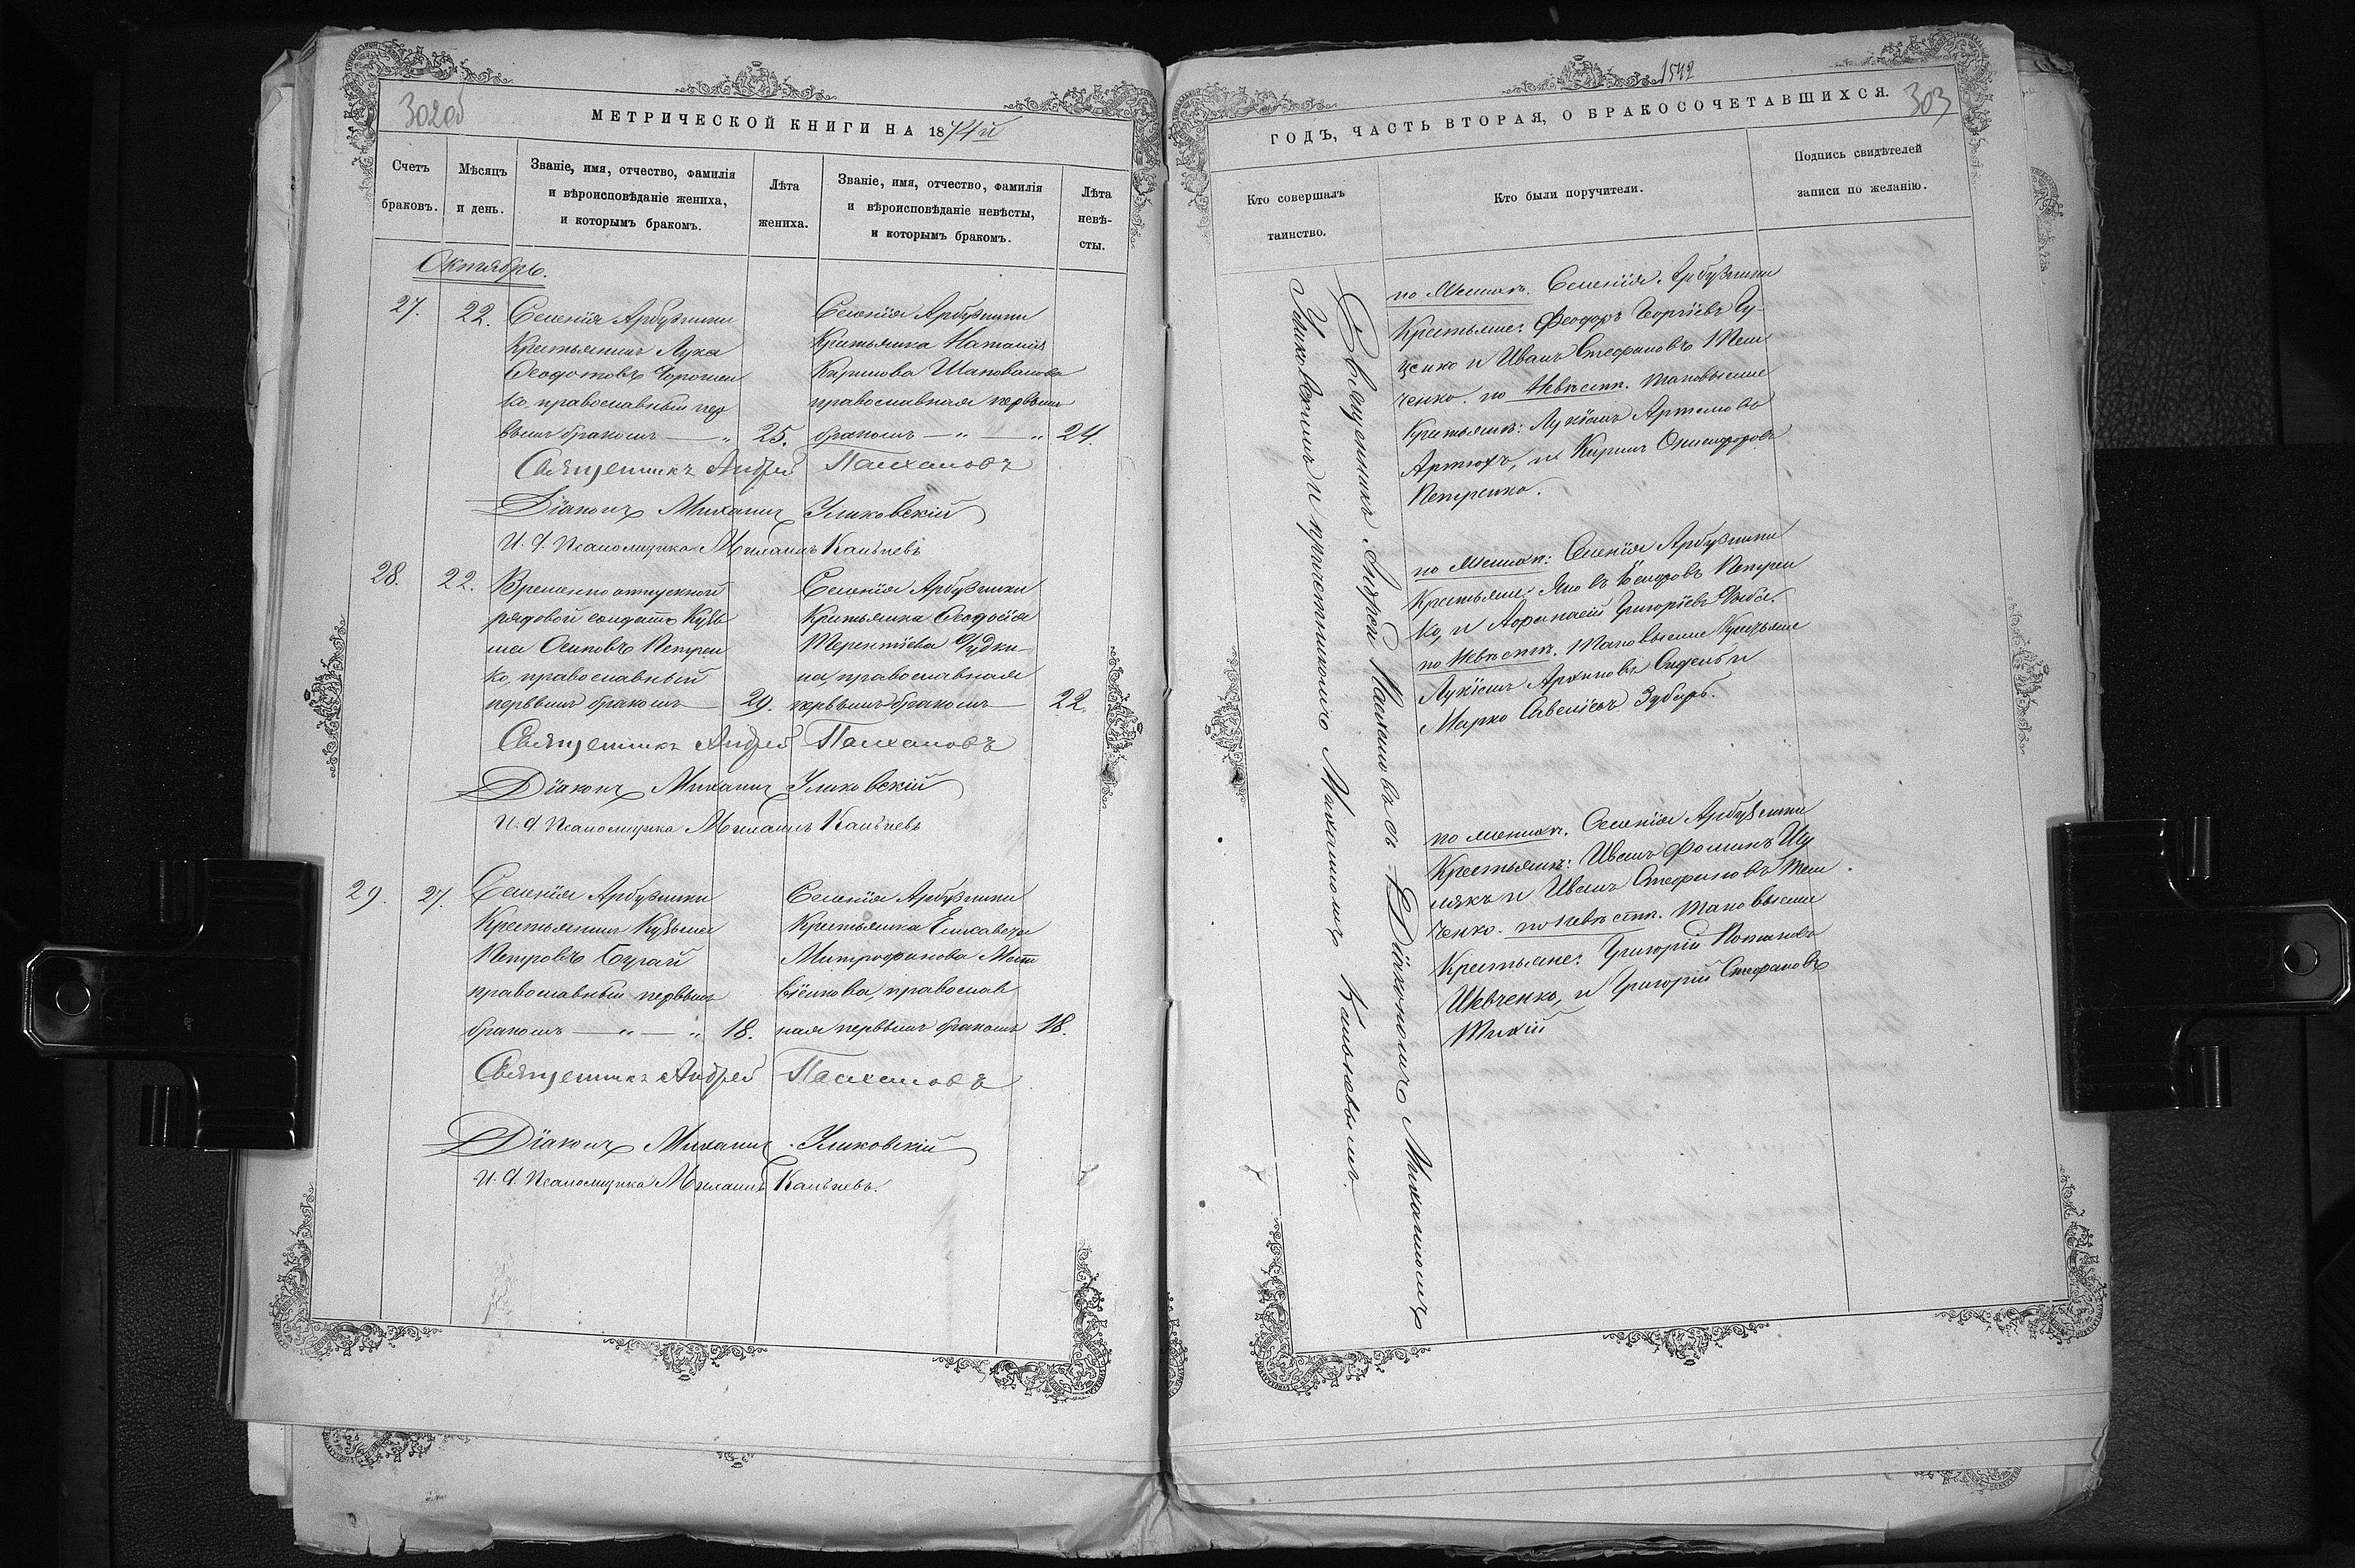 302об
МЕТРИЧЕСКОЙ КНИГИ НА 1874й
Счетъ
браковъ.
Мѣсяцъ
и день.
Званіе, имя, отчество, фамилія
и вѣроисповѣданіе жениха,
и которымъ бракомъ.
Лѣта
жениха.
Званіе, имя, отчество, фамилія
и вѣроисповѣданіе невѣсты,
и которымъ бракомъ.
Лѣта
невѣ-
сты.
Октябрь.
27.
22.
Селенія Арбузинки
Крестьянинъ Лука
Ѳеодотовъ
ко, православный пер
вымъ бракомъ — „
25.
Селенія Арбузинки
Крестьянка Наталія
Кирилова Шаповалова
православная первымъ
бракомъ — „ — „
24.
Священникъ Андрей Палхаловъ
Діаконъ Михаилъ Уликовскій
И. д. Псаломщика Михаилъ Кальневъ
28.
22.
Временно отпускной
рядовой солдатъ Кузь
ма Осиповъ Петрен
ко, православный
первымъ бракомъ —
29.
Селенія Арбузинки
Крестьянка Ѳеодосія
Терентіева
на, православная
первымъ бракомъ —
22.
Священникъ Андрей Палхаловъ
Діаконъ Михаилъ Уликовскій
И. д. Псаломщика Михаилъ Кальневъ
29.
27.
Селенія Арбузинки
Крестьянинъ Кузьма
Петровъ Бугай
православный первымъ
бракомъ — „ — „
18.
Селенія Арбузинки
Крестьянка Елисавета
Митрофанова Мат
віенкова, православ
ная первымъ бракомъ
18.
Священникъ Андрей Палхаловъ
Діаконъ Михаилъ Уликовскій
И. д. Псаломщика Михаилъ Кальневъ.
1542
303
ГОДЪ, ЧАСТЬ ВТОРАЯ, О БРАКОСОЧЕТАВШИХСЯ.
Кто совершалъ
таинство.
Кто были поручители.
Подпись свидѣтелей
записи по желанію.
Священникъ Андрей Палхаловъ съ Діакономъ Михаиломъ
Уликовскимъ и причетникомъ Михаиломъ Кальневымъ.
по Жених. Селенія Арбузинки
Крестьяне: Феодоръ Георгіевъ Гу-
ценко и Иванъ Стефановъ Тем
ченко. по Невѣстѣ. таковыеже
Крестьяне: Лукіанъ Артемовъ
Артюхъ, и Кирилъ Онисифоровъ
Петренко.
по Жених: Селенія Арбузинки
Крестьяне: Яковъ Петрен
ко, и Афанасій Григоріевъ
по Невѣстѣ. таковыеже Крестьяне
Лукіанъ Архиповъ и
Марко Савеліевъ Зубарь.
по жених. Селенія Арбузинки
Крестьяне: Иванъ Фоминъ Шу
лякъ и Иванъ Стефановъ Тем
ченко. по невѣстѣ. таковыеже
Крестьяне: Григорій Потаповъ
Шевченко, и Григорій Стефановъ
Тихій